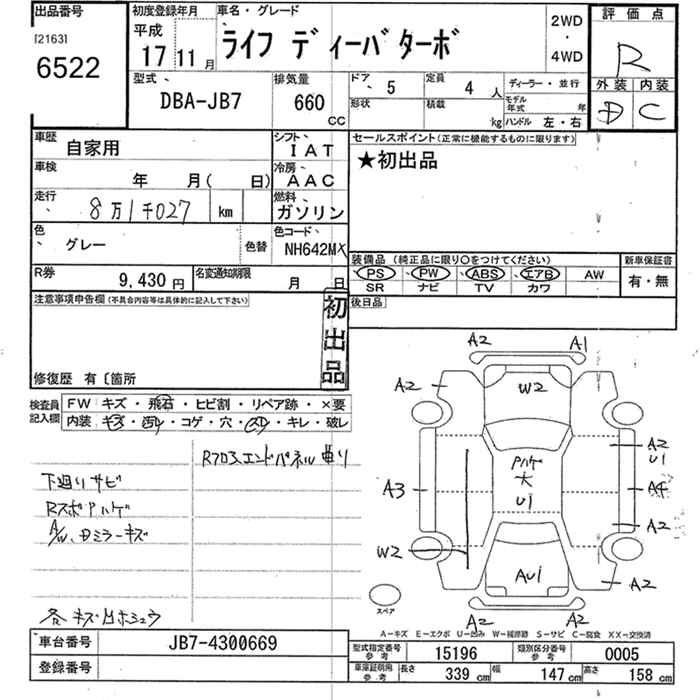 出品番号
[2163]
6522
初度登録年月
平成
17 11 月
車名・グレード
ライフ ディーバターボ
2WD
・
4WD
評価点
R
外装 内装
D C
型式
DBA-JB7
排気量
660
CC
ドア 5
定員 4 人
ディーラー・並行
形状
積載 kg
モデル年式 年
ハンドル 左・右
車歴
自家用
シフト
IAT
セールスポイント(正常に機能するものに限ります)
★初出品
車検
年 月( 日)
冷房
AAC
走行
8万1千027 km
燃料
ガソリン
色
グレー
色替
色コード
NH642M
装備品 (純正品に限り○をつけてください)
PS PW ABS エアB AW
SR ナビ TV カワ
新車保証書
有・無
R券
9,430 円
名変通知期限
月 日
後日品
注意事項申告欄(不具合内容等は具体的に記入して下さい)
初出品
修復歴 有〔箇所
検査員記入欄
FW キズ・飛石・ヒビ割・リペア跡・×要
内装・キズ・凹り・コゲ・穴・・キレ・破レ
Rフロスエンドパネル曲り
下廻りサビ
A/W、Dミラーキズ
A2 A1
A2 W2
A2
U1
A3
U1
A2
W2
AU1
A2
A2 A2
スペア
A-キズ E-エクボ U-凹み W-補修跡 S-サビ C-腐食 XX-交換済
車台番号
JB7-4300669
登録番号
型式指定番号
参考
15196
類別区分番号
参考
0005
車庫証明用
参考
長さ 339 cm
幅 147 cm
高さ 158 cm